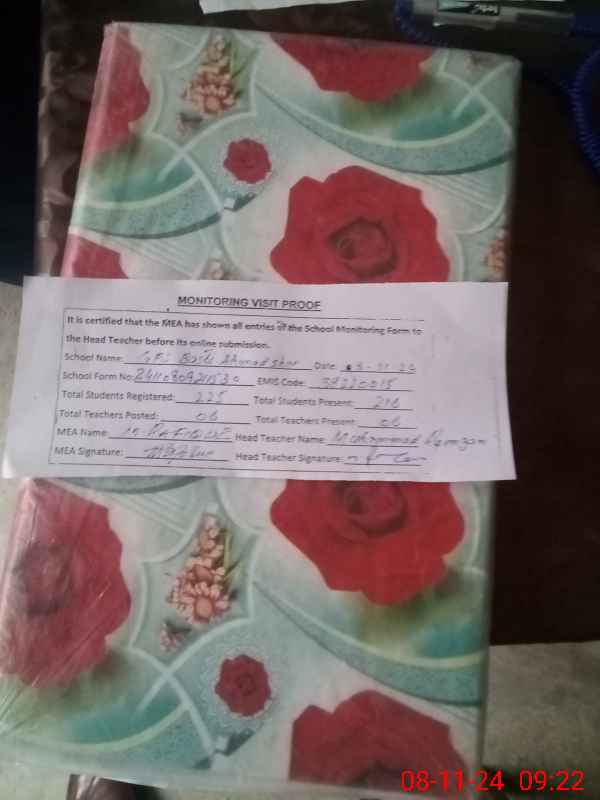 MONITORING VISIT PROOF
It is certified that the MEA has shown all entries of the School Monitoring Form to
the Head Teacher before its online submission.
School Name: GPS Basti Ahmad Date: 8-11-24
School Form No: EMIS Code:
Total Students Registered: 225 Total Students Present: 216
Total Teachers Posted: 06 Total Teachers Present: 06
MEA Name: M. RAFIQUE Head Teacher Name: Mohammad Ramzan
MEA Signature: Head Teacher Signature:
08-11-24 09:22